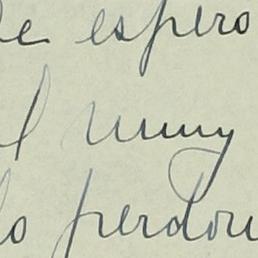 de espero
el muy
lo perdon